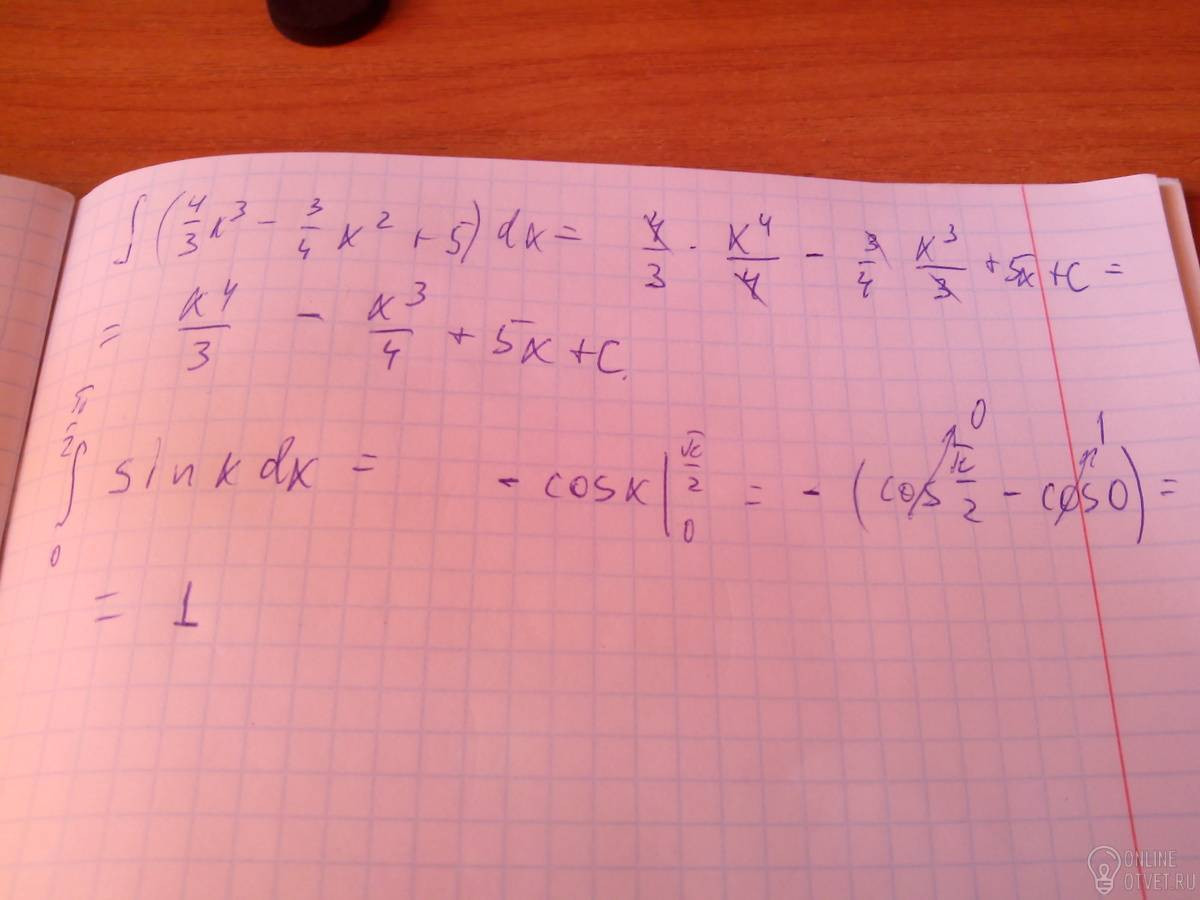 ∫ (4/3 x³ - 3/4 x² + 5) dx = 4/3 · x⁴/4 - 3/4 x³/3 + 5x + C =
= x⁴/3 - x³/4 + 5x + C.
∫₀^(π/2) sin x dx = - cos x |₀^(π/2) = - (cos π/2 - cos 0) =
0 1
= 1
ONLINE
OTVET.RU